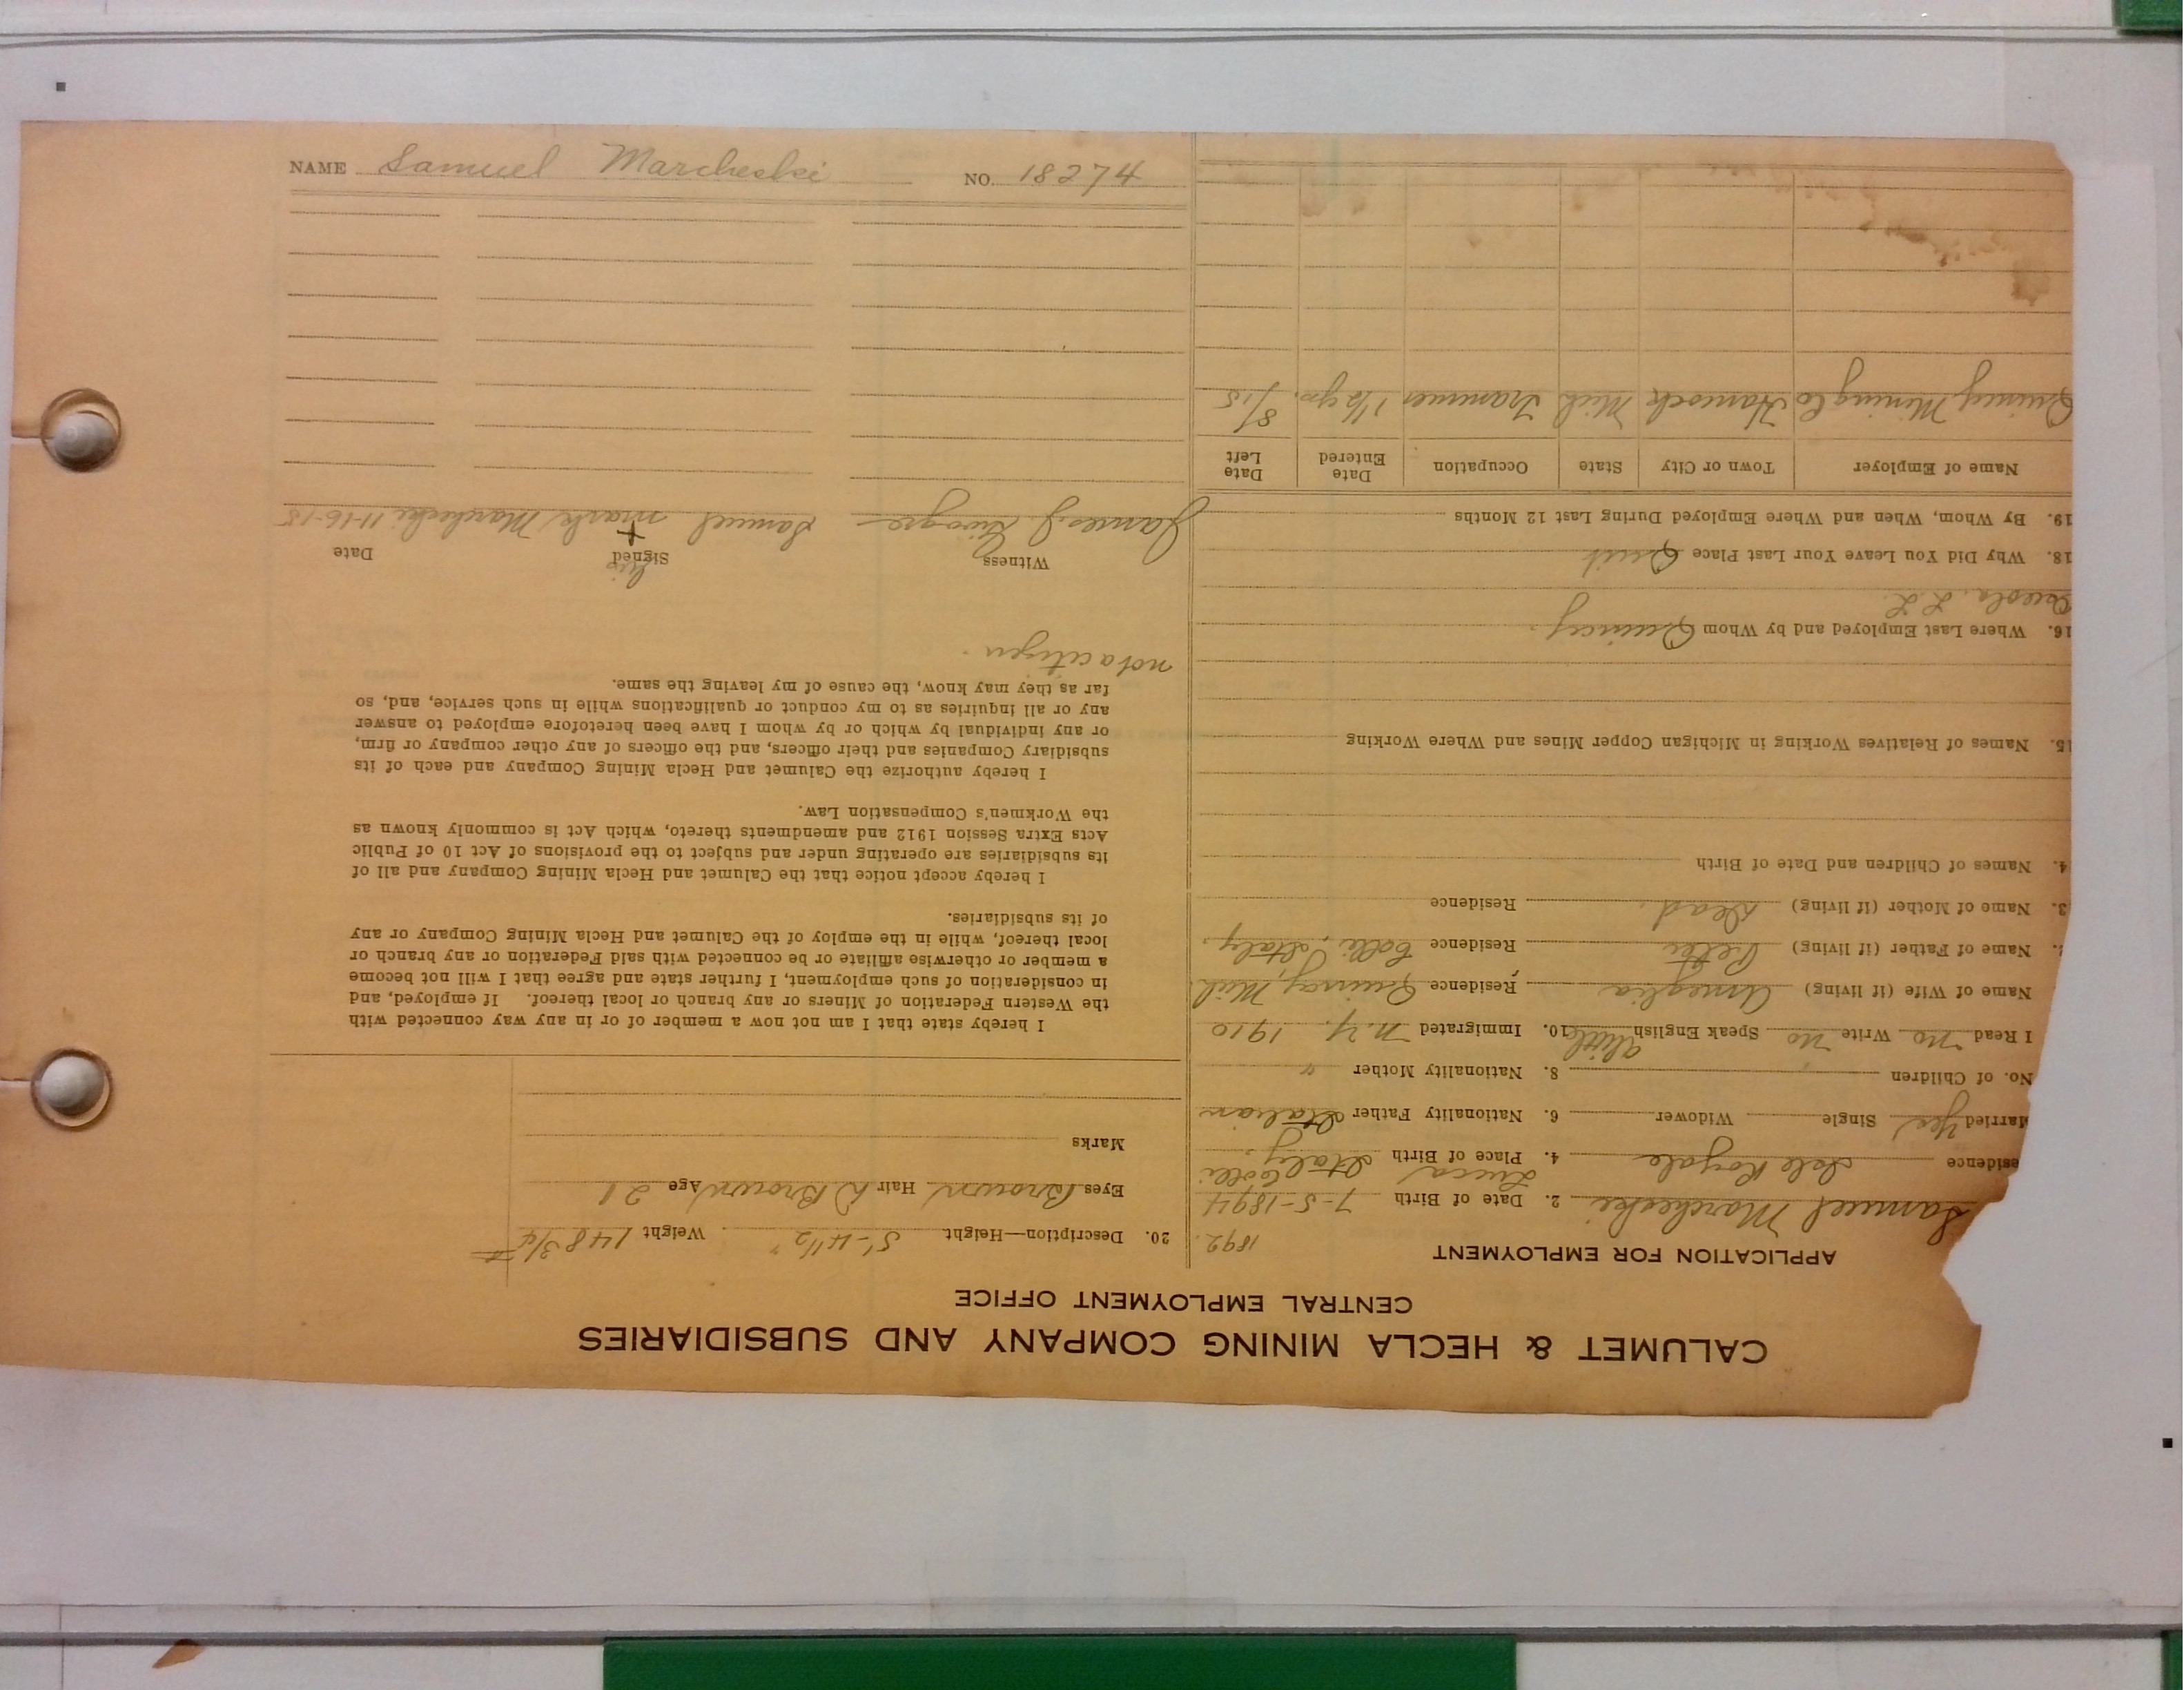 NAME Samuel Marcheski NO. 18274
CALUMET & HECLA MINING COMPANY AND SUBSIDIARIES
CENTRAL EMPLOYMENT OFFICE
APPLICATION FOR EMPLOYMENT
1892.
Samuel Marcheski 2. Date of Birth 7-5-1894
Lucca Colli
esidence Isle Royale 4. Place of Birth Italy.
Married Yes Single Widower 6. Nationality Father Italian
No. of Children 8. Nationality Mother "
I Read no Write no Speak English a little 10. Immigrated N.Y. 1910
Name of Wife (if living) Residence Quincy, Mich
Name of Father (if living) Residence Colli, Italy.
3. Name of Mother (if living) Dead. Residence
4. Names of Children and Date of Birth
15. Names of Relatives Working in Michigan Copper Mines and Where Working
16. Where Last Employed and by Whom Quincy.
Osceola. L.L.
18. Why Did You Leave Your Last Place Quit
19. By Whom, When and Where Employed During Last 12 Months
Name of Employer Town or City State Occupation Date Entered Date Left
Quincy Mining Co Hancock Mich Trammer 1 1/2 yrs. 8/15
20. Description—Height 5'-4 1/2" Weight 148 3/4
Eyes Brown Hair D Brown Age 21
Marks
I hereby state that I am not now a member of or in any way connected with
the Western Federation of Miners or any branch or local thereof. If employed, and
in consideration of such employment, I further state and agree that I will not become
a member or otherwise affiliate or be connected with said Federation or any branch or
local thereof, while in the employ of the Calumet and Hecla Mining Company or any
of its subsidiaries.
I hereby accept notice that the Calumet and Hecla Mining Company and all of
its subsidiaries are operating under and subject to the provisions of Act 10 of Public
Acts Extra Session 1912 and amendments thereto, which Act is commonly known as
the Workmen's Compensation Law.
I hereby authorize the Calumet and Hecla Mining Company and each of its
subsidiary Companies and their officers, and the officers of any other company or firm,
or any individual by which or by whom I have been heretofore employed to answer
any or all inquiries as to my conduct or qualifications while in such service, and, so
far as they may know, the cause of my leaving the same.
not a citizen.
Witness Signed Date
his
James J. Samuel + mark Marcheski 11-16-15